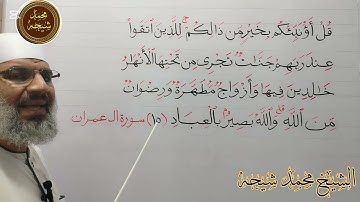 محمد شيحه
قُلْ أَؤُنَبِّئُكُم بِخَيْرٍ مِّن ذَٰلِكُمْ ۚ لِلَّذِينَ اتَّقَوْا
عِندَ رَبِّهِمْ جَنَّاتٌ تَجْرِي مِن تَحْتِهَا الْأَنْهَارُ
خَالِدِينَ فِيهَا وَأَزْوَاجٌ مُّطَهَّرَةٌ وَرِضْوَانٌ
مِّنَ اللَّهِ ۗ وَاللَّهُ بَصِيرٌ بِالْعِبَادِ (١٥) سورة ال عمران
الشيخ محمد شيحه